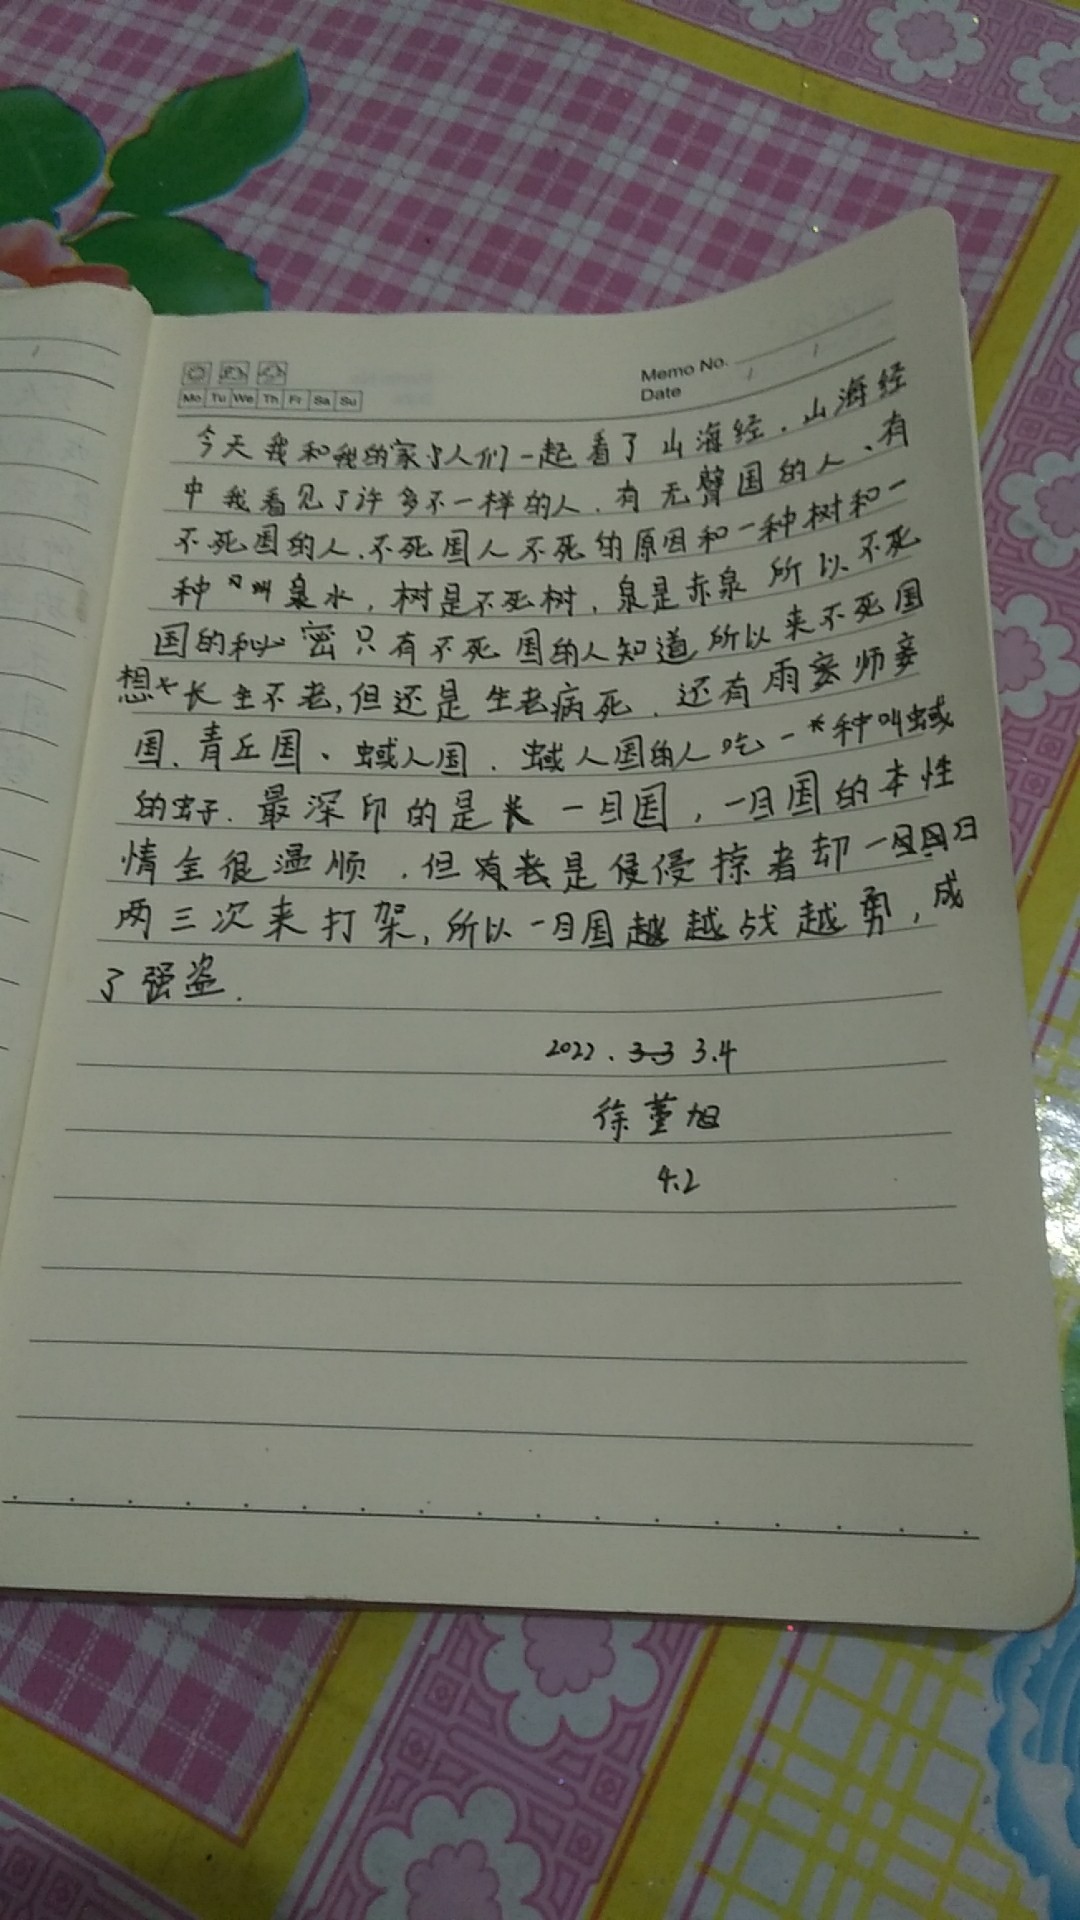 Memo No.
Mo Tu We Th Fr Sa Su
Date
今天我和我的家人们一起看了山海经.山海经
中我看见了许多不一样的人.有无臂国的人、有
不死国的人.不死国人不死的原因和一种树和一
种叫泉水,树是不死树,泉是赤泉所以不死
国的秘密只有不死国的人知道所以来不死国
想长生不老,但还是生老病死.还有雨师妾
国、青丘国、蜮人国.蜮人国的人吃一种叫蜮
的虫子.最深印的是一目国,一目国的本性
情全很温顺.但老是侵掠者却一日
两三次来打架,所以一目国越战越勇,成
了强盗.
2022.3.4
徐堇旭
4.2